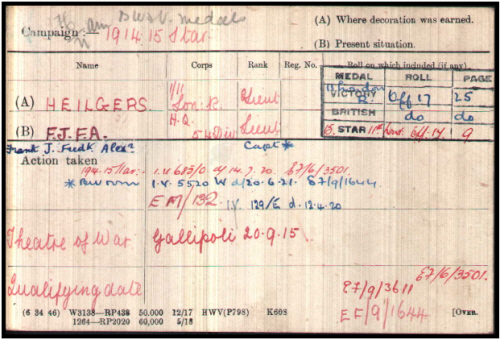 B.W. & V. medals
(A) Where decoration was earned.
Campaign :— 1914 15 Star
(B) Present situation.
Name Corps Rank Reg. No. Roll on which included (if any).
MEDAL ROLL PAGE
(A) HEILGERS 1/11 Lon. R. Lieut
VICTORY Off 17 25
BRITISH do do
(B) F.J.F.A. H.Q. 54 Div Lieut
STAR 11th Lond. Off. 14 9
Frank J. Fredk Alexr Capt *
Action taken
1914-15 Star:- I.V. 685/0 d/14.7.20. E7/6/3501.
* I.V. 5520 W d/20.6.21. E7/9/1644
EM/132. I.V. 129/E d. 12.4.20
Theatre of War Gallipoli 20.9.15
E7/6/3501.
Qualifying date E7/9/3611
EF/9/1644
(6 34 46) W3138—RP438 50,000 12/17 HWV(P798) K608 [OVER.
1264—RP2020 60,000 5/18